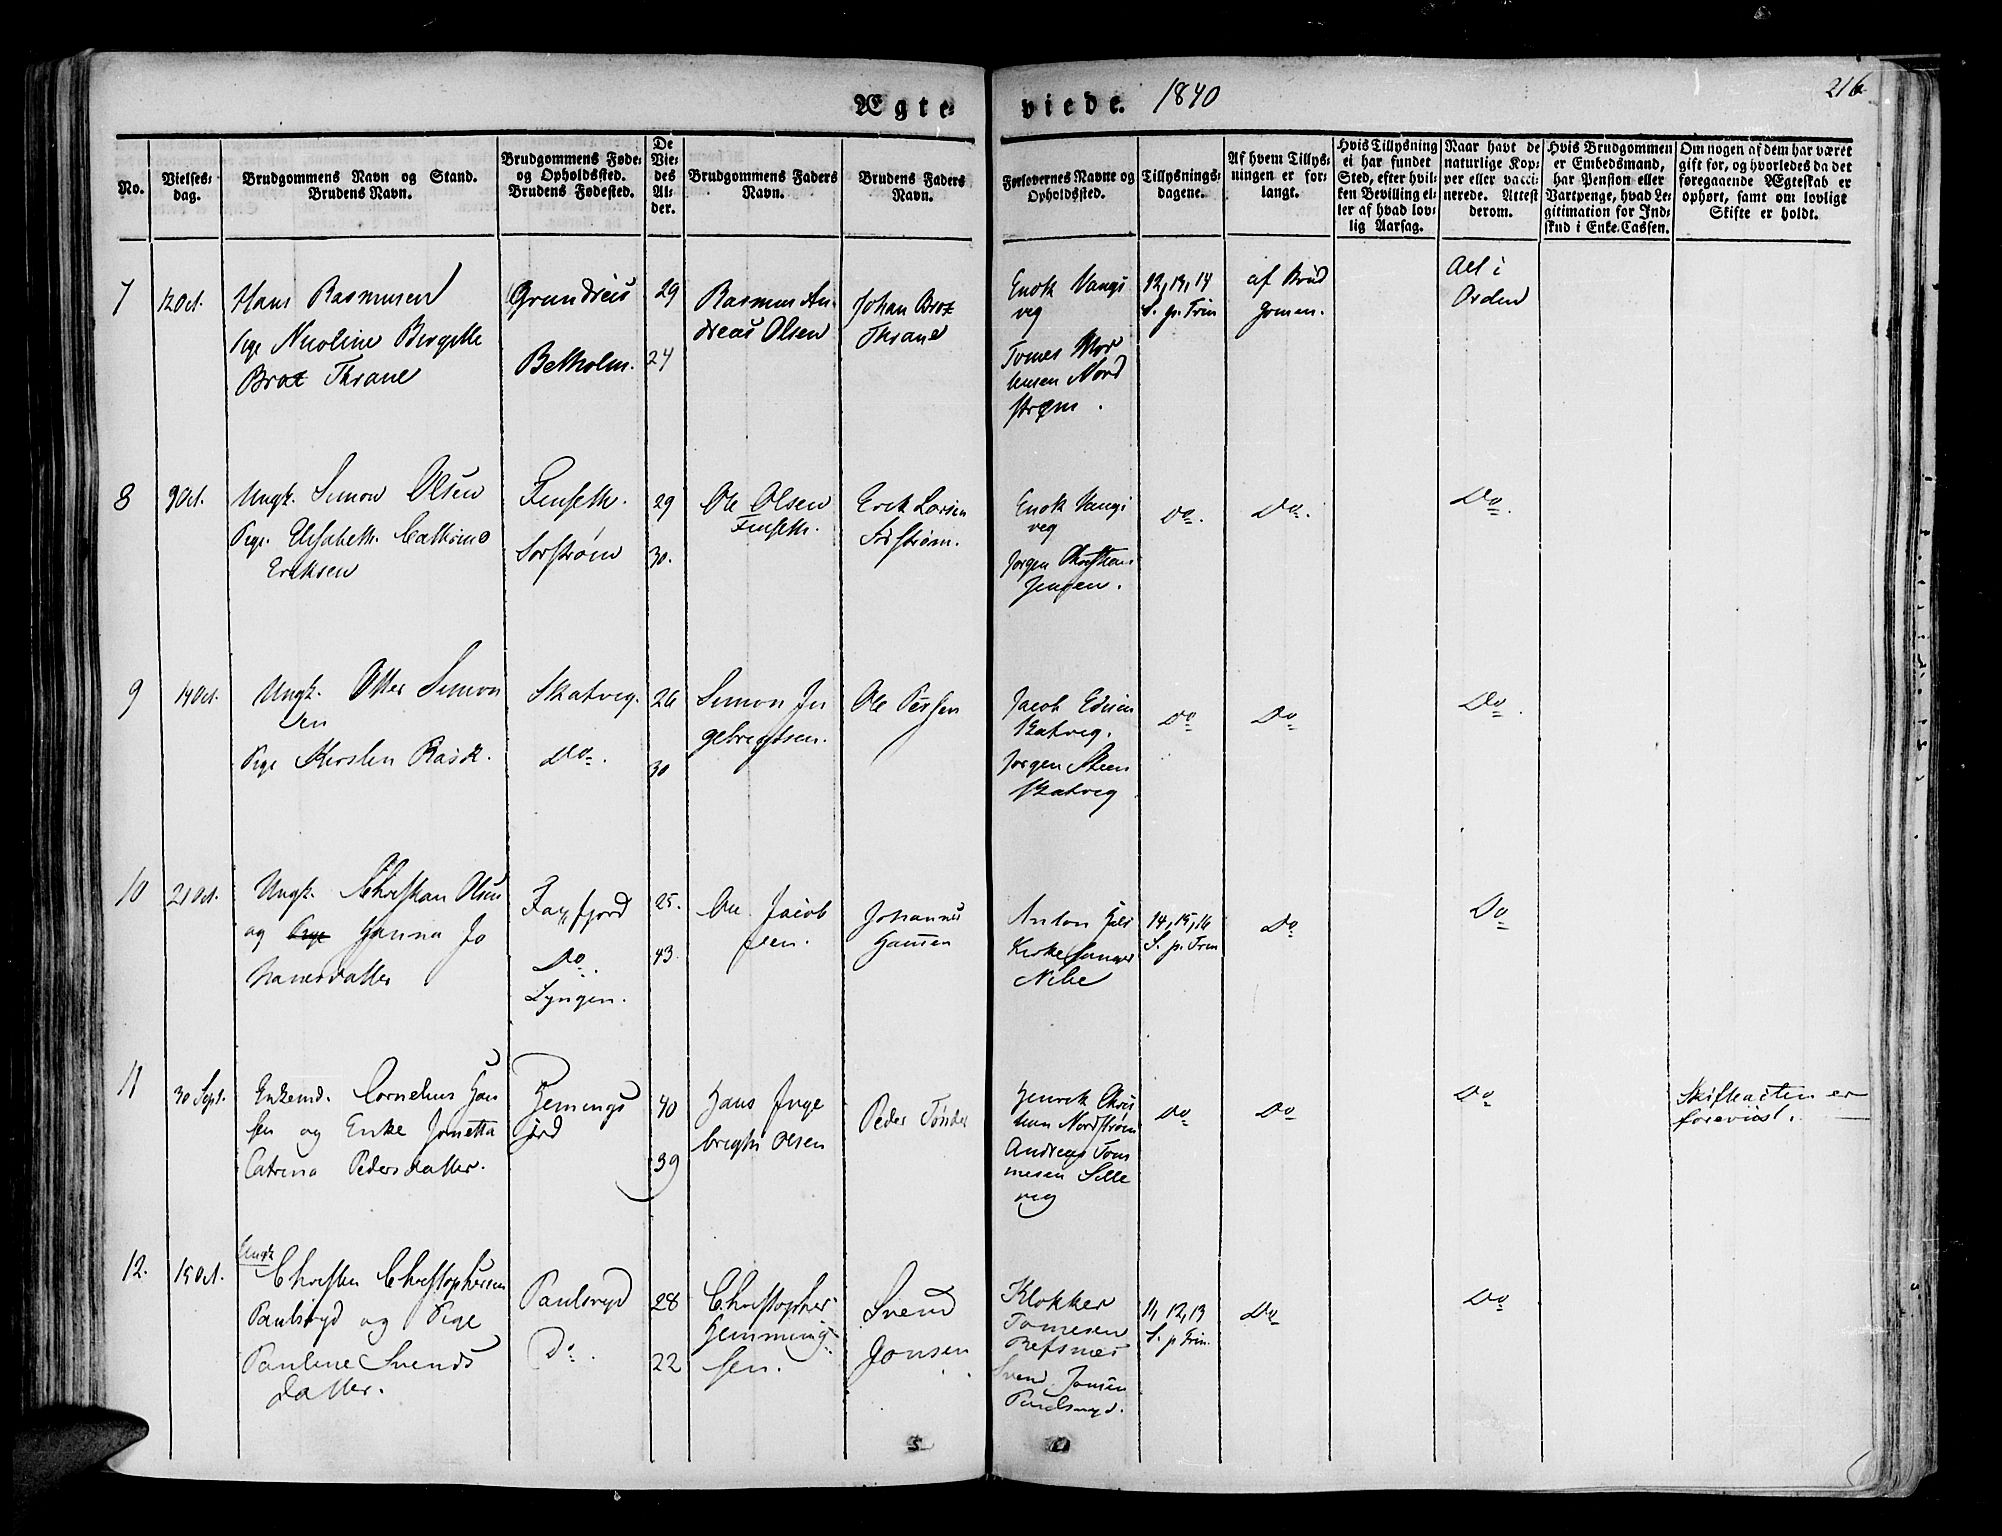 Ægte viede. 1840
216
No.
Vielses-
dag.
Brudgommens Navn og Stand.
Brudens Navn.
Brudgommens Føde-
og Opholdssted.
Brudens Fødested.
De
Vie-
des
Al-
der.
Brudgommens Faders
Navn.
Brudens Faders
Navn.
Forlovernes Navne og
Opholdssted.
Tillysnings-
dagene.
Af hvem Tillys-
ningen er for-
langt.
Hvis Tillysning
ei har fundet
Sted, efter hvil-
ken Bevilling el-
ler af hvad lov-
lig Aarsag.
Naar havt de
naturlige Kop-
per eller vacci-
nerede. Attest
derom.
Hvis Brudgommen
er Embedsmand,
har Pension eller
Vartpenge, hvad Le-
gitimation for Ind-
skud i Enke-Cassen.
Om nogen af dem har været
gift før, og hvorledes da det
foregaaende Ægteskab er
ophørt, samt om lovligt
Skifte er holdt.
7
12 Oct.
Hans Rasmusen
Pige Nicoline Bergitte
Brox Thrane
Grundreis
Betholm.
29
24
Rasmus An
dreas Olsen
Johan Brox
Thrane
Enok Vangs
veg
Tomes Mor
tensen Nord
strøm.
12, 13, 14
S. p. Trin
af Brud
gomen.
Alt i
Orden
8
9 Oct.
Ungk. Simon Olsen
Pige. Elisabeth Cathrine
Eriksen
Finseth.
Sorstrøm
29
30.
Ole Olsen
Finseth.
Erik Larsen
Sorstrøm.
Enok Vangs
veg
Jørgen Christians
Jensen.
Do.
Do.
Do.
9
14 Oct.
Ungk. Otter Simon
sen
Pige Kirsten Rask.
Skatveg.
Do.
26
30
Simon In
gebregtsen.
Ole Persen
Jacob
Skatveg.
Jørgen Steen
Skatveg
Do
Do
Do.
10
21 Oct.
Ungk. Christian Olsen
og Pige Hanna Jo
hanesdatter
Faxfjord
Do.
Lyngen.
25.
43.
Ole Jacob
sen.
Johannes
Hansen
Anton
Kirkesanger
Nibe
14, 15, 16
S. p. Trin
Do
Do
11
30 Sept.
Enkemd. Cornelius Han
sen og Enke Jonetta
Catrina Pedersdatter.
Hemings
jord
40
39
Hans Inge
brigts Olsen
Peder Tønder
Henrik Chris
tian Nordstrøm
Andreas Tom
mesen Sille
veg
Do
Do
Do
Skifteacten er
foreviist.
12.
15 Oct.
Ungk
Christen Christophersen
Paulsryd og Pige
Pauline Svends
datter.
Paulsryd
Do.
28
22
Christopher
Hemming
sen.
Svend
Jonsen
Klokker
Tomesen
Refsnes
Svend Jonsen
Paulsryd.
11, 12, 13
S. p Trin.
Do
Do